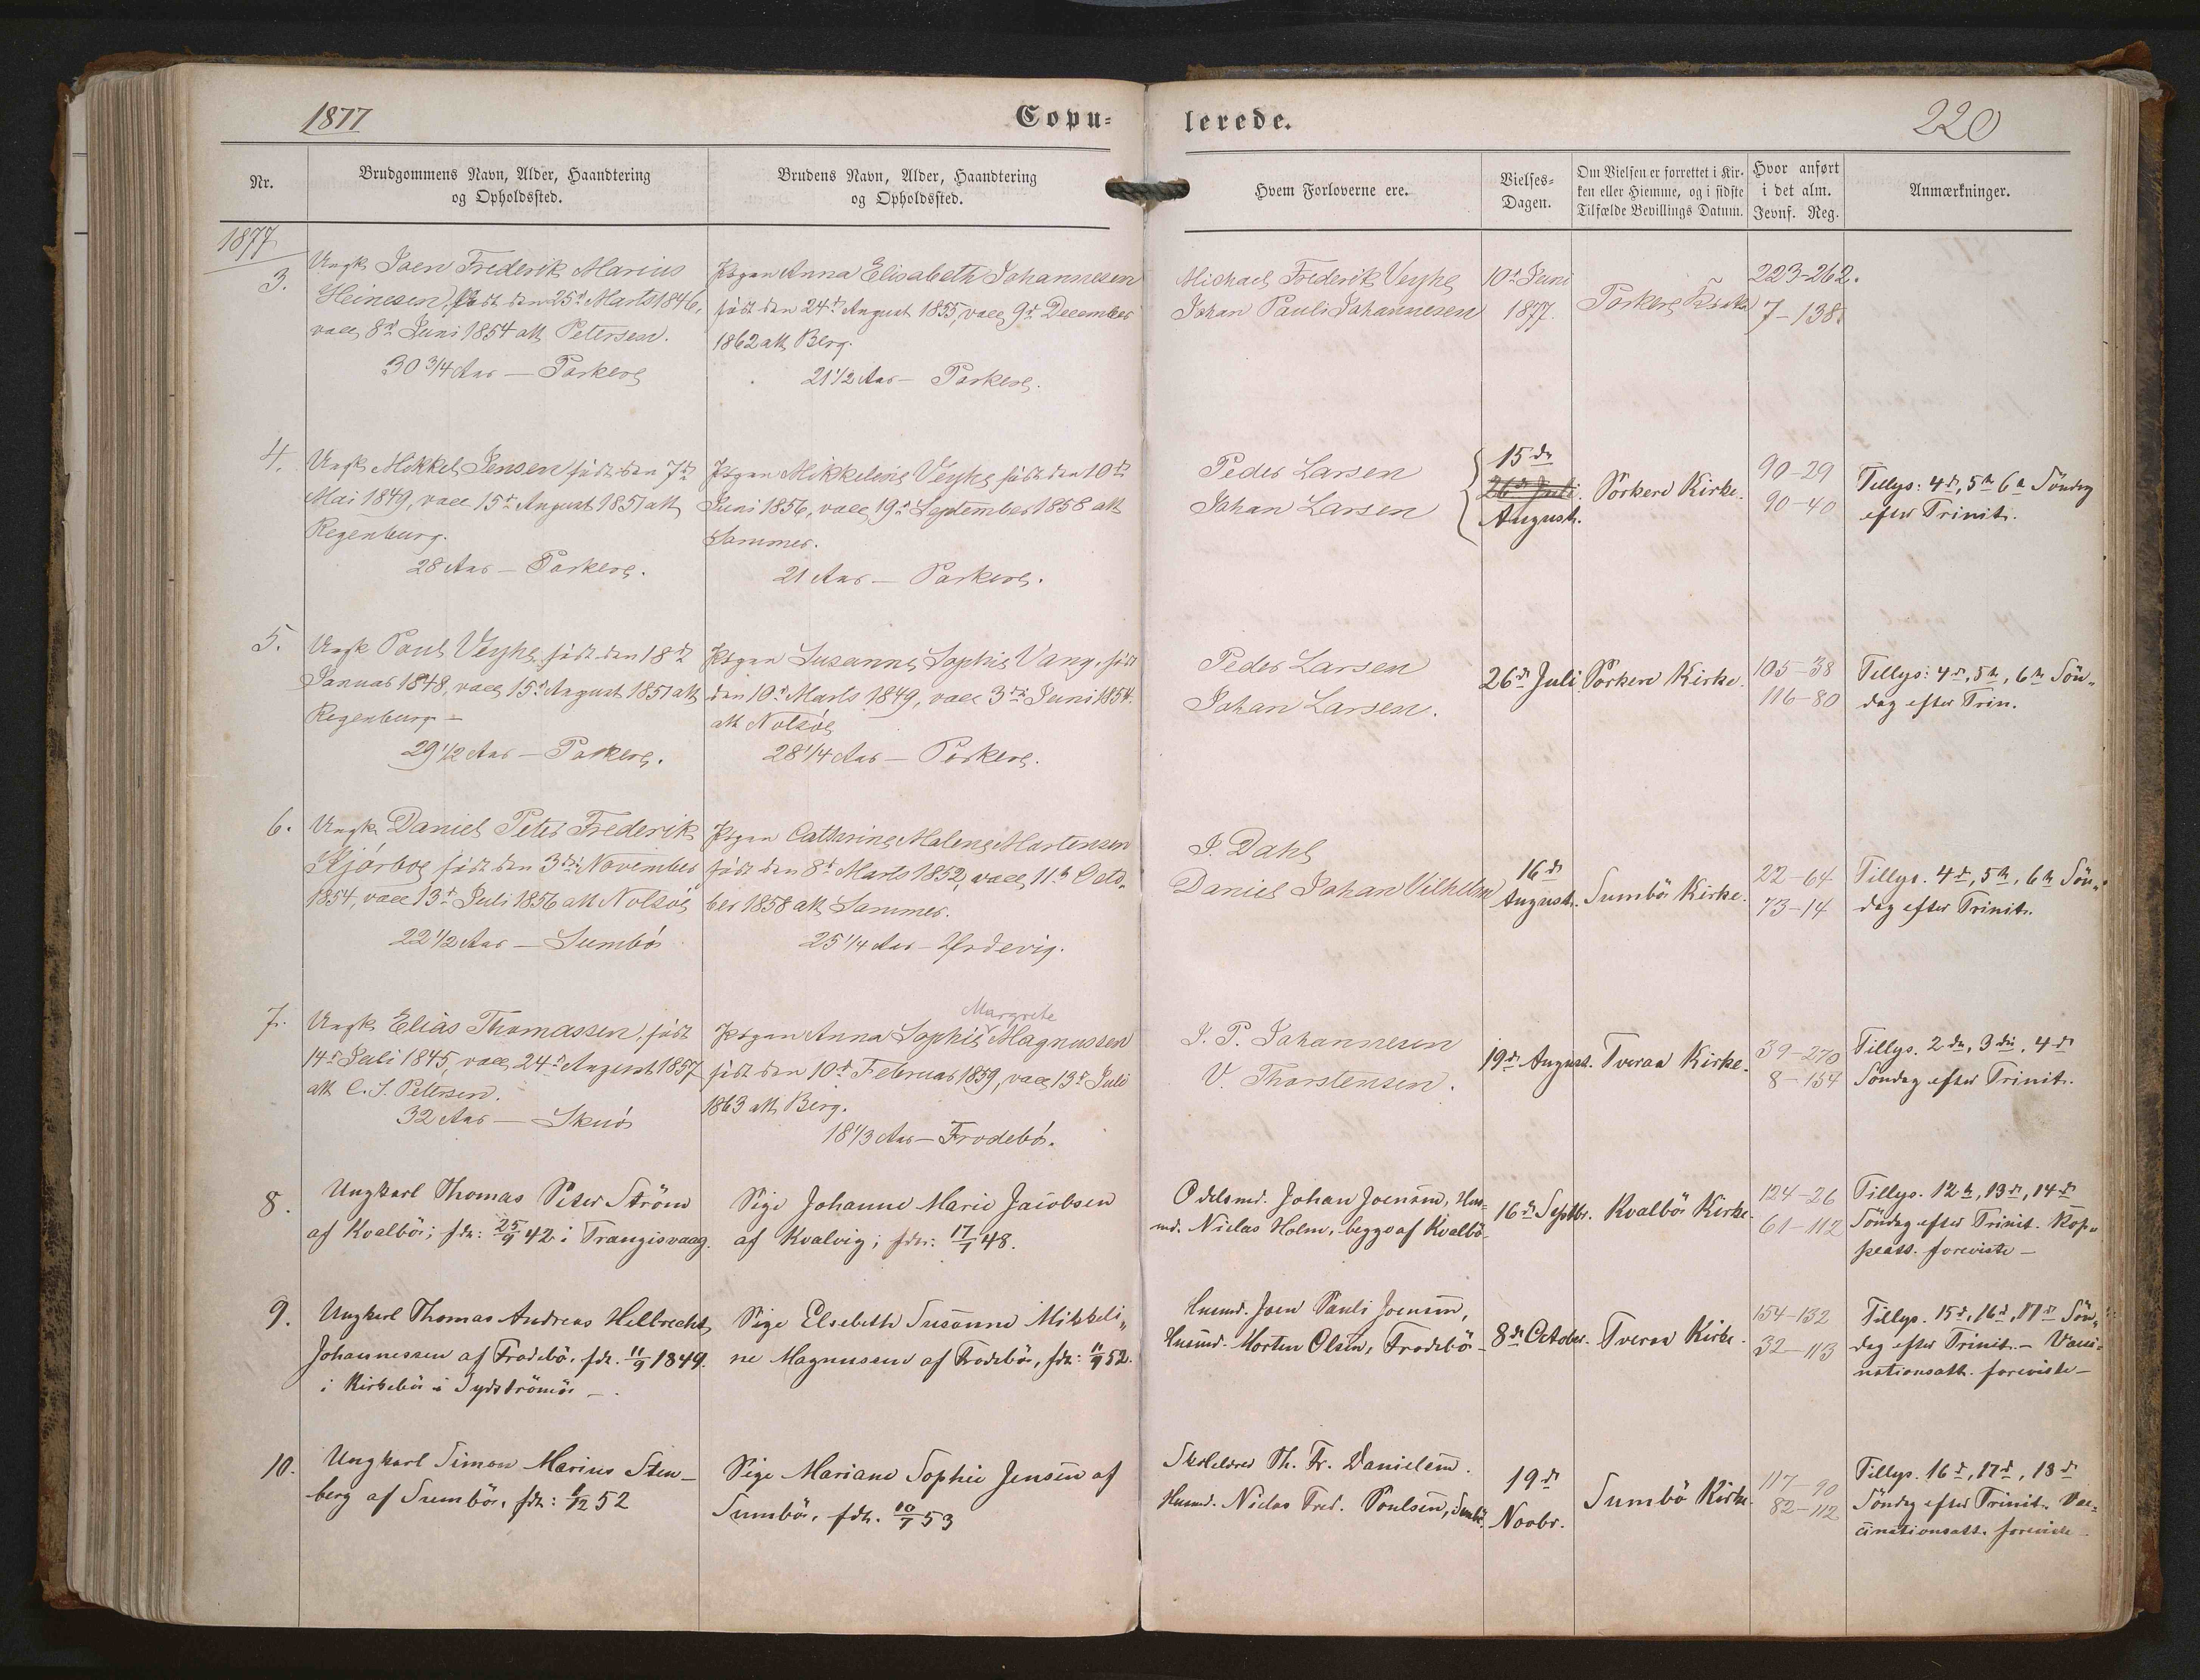 1877
Copu-
lerede.
220
Nr.
Brudgommens Navn, Alder, Haandtering
og Opholdssted.
Brudens Navn, Alder, Haandtering
og Opholdssted.
Hvem Forloverne ere.
Vielses-
Dagen.
Om Vielsen er forrettet i Kir-
ken eller Hiemme, og i sidste
Tilfælde Bevillings Datum.
Hvor anført
i det alm.
Jevnf. Reg.
Anmærkninger.
1877
3.
Ungk. Joen Frederik Marius
Heinesen, født den 25d Marts 1846,
vacc. 8d Juni 1854 att. Petersen.
30 3/4 Aar — Porkere
Pigen Anna Elisabeth Johannesen
født den 24d August 1855, vacc. 9d December
1862 att. Berg.
21 1/2 Aar — Porkere.
Michael Frederik Veyhe
Johan Pauli Johannesen
10d Juni
1877.
Porkere Kirke
223-262.
7-138.
4.
Ungk. Mikkel Jensen født den 7de
Mai 1849, vacc. 15d August 1851 att.
Regenburg.
28 Aar — Porkere.
Pigen Mikkeline Veyhe født den 10de
Juni 1856, vacc. 19d September 1858 att.
Sammes.
21 Aar — Porkere.
Peder Larsen
Johan Larsen
15de
26de Juli
August.
Porkere Kirke.
90-29
90-40
Tillys: 4d, 5te 6te Söndag
efter Trinit.
5.
Ungk. Poul Veyhe, født den 18de
Januar 1848, vacc. 15d August 1851 att.
Regenburg —
29 1/2 Aar — Porkere.
Pigen Susanne Sophie Vang, født
den 10d Marts 1849, vacc. 3die Juni 1854.
att. Nolsöe
28 1/4 Aar — Porkere.
Peder Larsen
Johan Larsen.
26de Juli
Porkere Kirke.
105-38
116-80
Tillys: 4d, 5te, 6te Sön-
dag efter Trin.
6.
Ungk. Daniel Peter Frederik
Kjørboe født den 3die November
1854, vacc. 13d Juli 1856 att. Nolsöe
22 1/2 Aar — Sumbö
Pigen Cathrine Malene Mortensen
født den 8d Marts 1852, vacc. 11te Octo-
ber 1858 att. Sammes.
25 1/4 Aar — Hvdevig.
J. Dahl
Daniel Johan Vilhelm
16de
August.
Sumbö Kirke.
22-64
73-14
Tillys. 4d, 5te, 6te Sön-
dag efter Trinit.
7.
Ungk. Elias Thomassen, født
14d Juli 1845, vacc. 24d August 1857
att. C. J. Petersen.
32 Aar — Skuö
Margrete
Pigen Anna Sophie Magnussen
født den 10d Februar 1859, vacc. 13d Juli
1863 att. Berg.
18 1/3 Aar — Frodebö.
J. P. Johannesen
V. Thorstensen.
19de August.
Tveraa Kirke.
39-270
8-154
Tillys. 2den, 3die, 4de
Söndag efter Trinit.
8.
Ungkarl Thomas Peter Ström
af Kvalbö; fdt: 25/9 42 i Trangisvaag.
Pige Johanne Marie Jacobsen
af Kvalvig; fdt: 17/1 48.
Odelsmd. Johan Joensen, Hus-
md. Niclas Holm, begge af Kvalbö
16de Septbr.
Kvalbö Kirke.
124-26
61-112
Tillys. 12te, 13de, 14de
Söndag efter Trinit. Kop-
peatt. foreviste —
9.
Ungkarl Thomas Andreas Helbrecht
Johannessen af Frodebö, fdt. 11/9 1849.
i Kirkebö i Sydströmö —
Pige Elsebeth Susanne Mikkeli-
ne Magnussen af Frodebö, fdt: 11/9 52.
Husmd. Joen Pauli Joensen,
Husmd. Morten Olsen, Frodebö —
8de October.
Tveraa Kirke.
154-132
32-113
Tillys. 15de, 16de, 17de Sön-
dag efter Trinit. — Vacci-
nationsatt. foreviste —
10.
Ungkarl Simon Marius Sten-
berg af Sumbö, fdt: 1/12 52
Pige Mariane Sophie Jensen af
Sumbö, fdt. 10/7 53
Skolelærer Th. Fr. Danielsen.
Husmd. Niclas Fred. Poulsen, Sumbö.
19de
Novbr.
Sumbö Kirke.
117-90
82-112
Tillys. 16de, 17de, 18de
Söndag efter Trinit. Vac-
cinationsatt. foreviste —